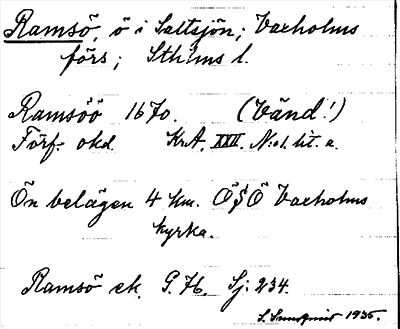 Ramsö, ö i Saltsjön; Vaxholms
förs; Sthlms l.
Ramsöö 1670. (Vänd!)
Förf. okd. KrA. XXII. N:o1. lit. a.
Ön belägen 4 km. ÖSÖ Vaxholms
kyrka.
Ramsö ek. G. 76. Sj: 234.
S. Sundqvist 1935.